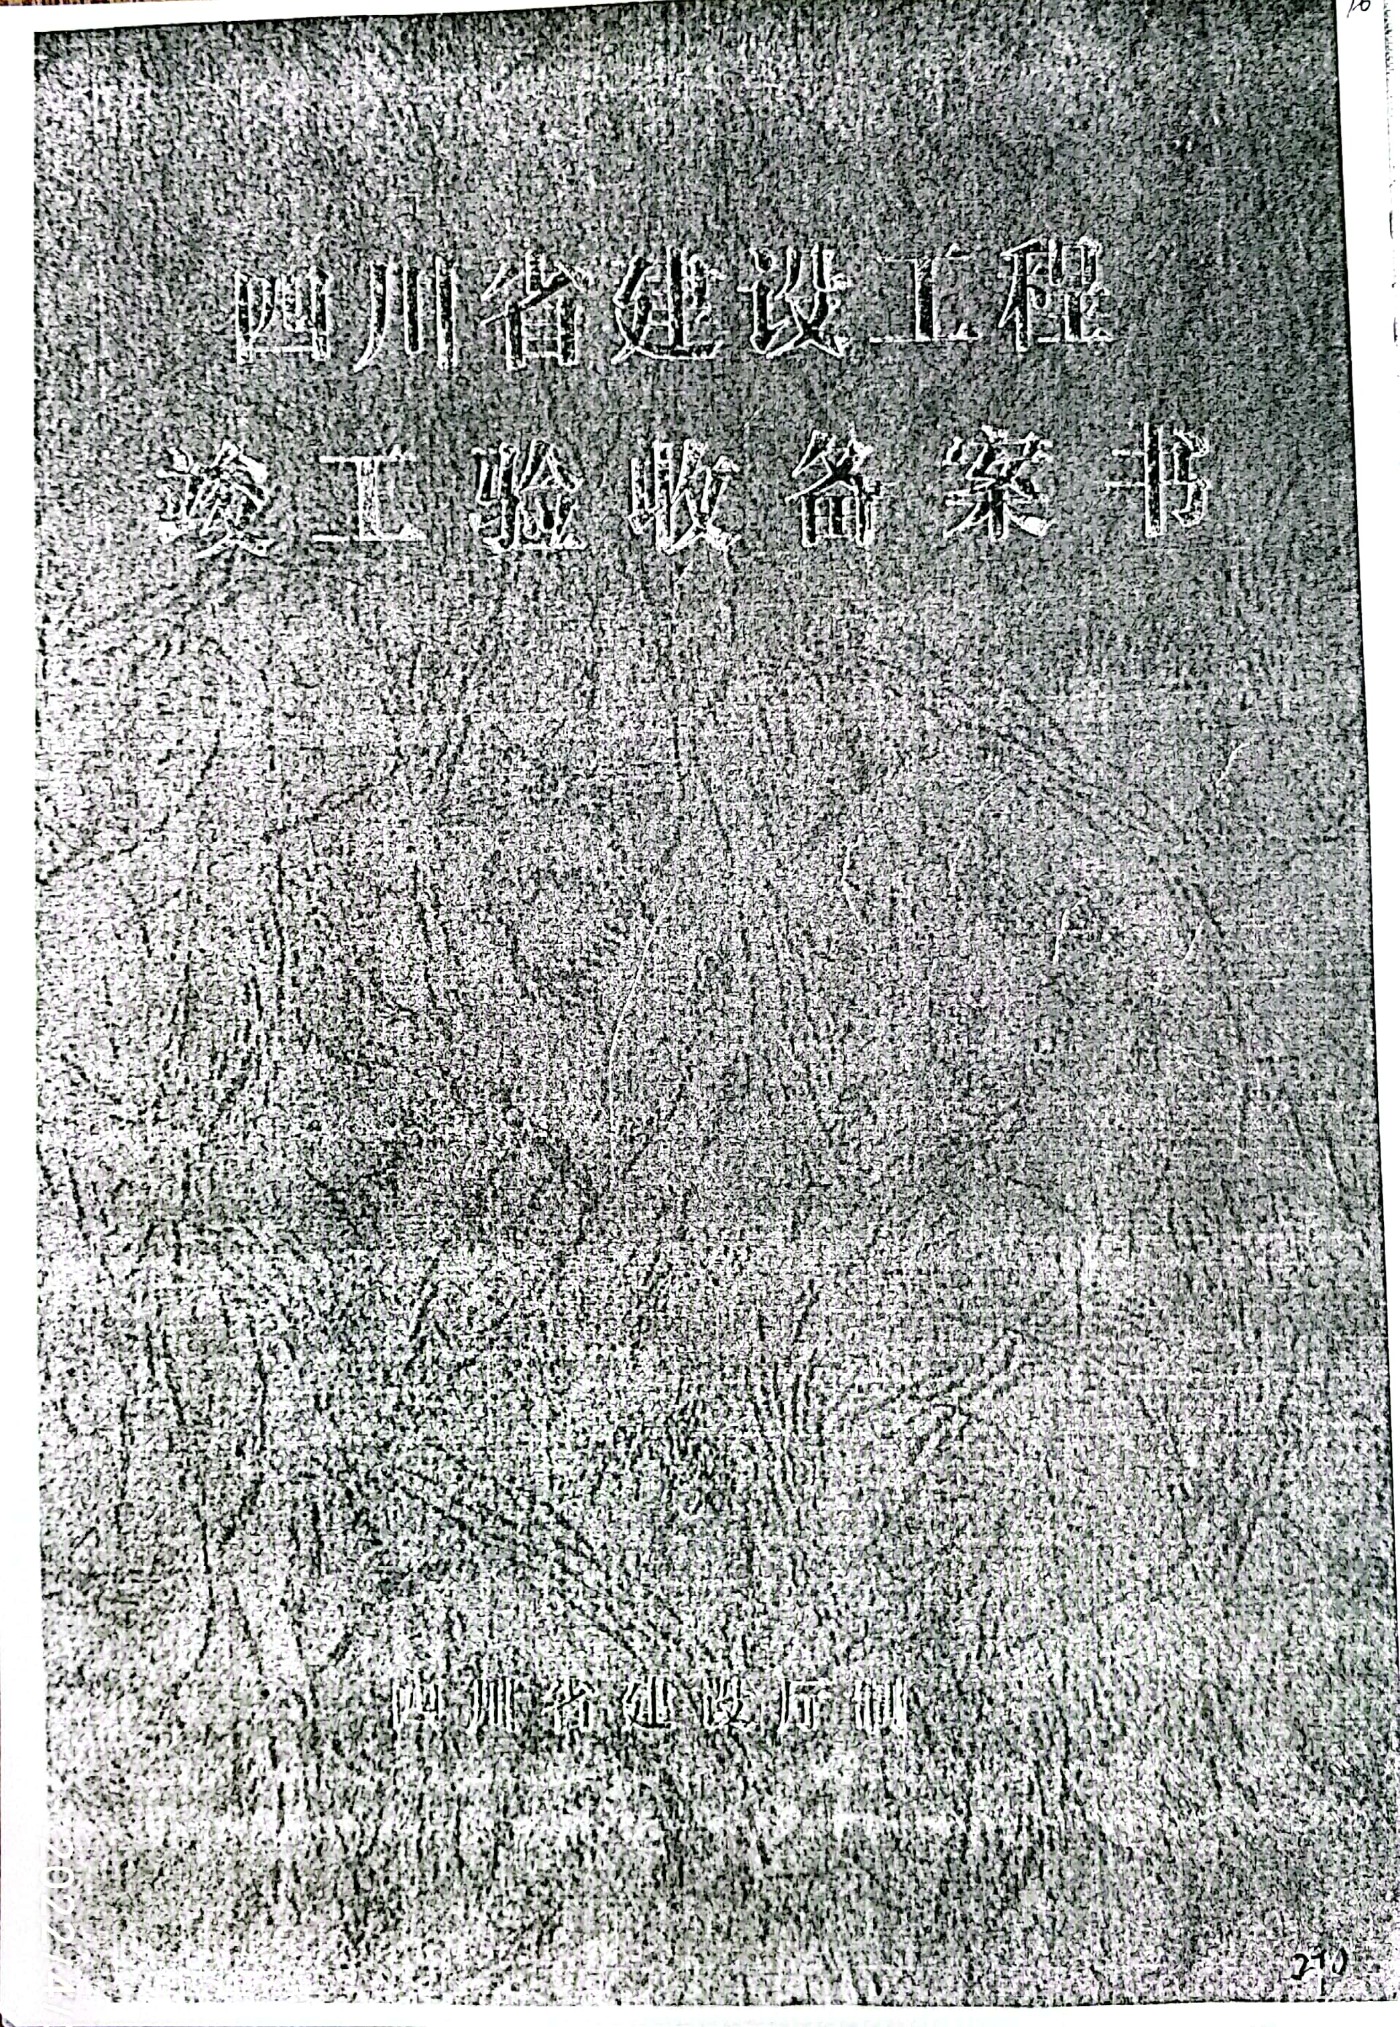 四川省建设工程
竣工验收备案书
四川省建设厅制